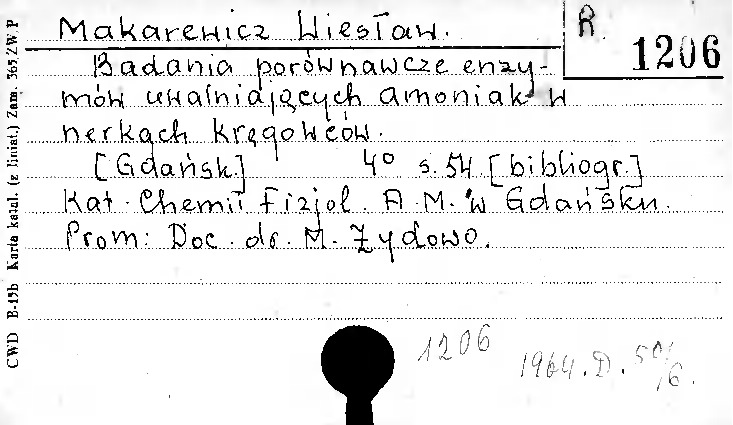 Makarewicz Wiesław.
R. 1206
Badania porównawcze enzy-
mów uwalniających amoniak w
nerkach kręgowców.
[Gdańsk] 4° s. 54 [bibliogr.]
Kat. Chemii Fizjol. A.M. w Gdańsku.
Prom: Doc. dr. M. Żydowo.
1206
1964.D.50/6.
CWD B-15b Karta katal. (z liniat.) Zam. 365/ZW/P